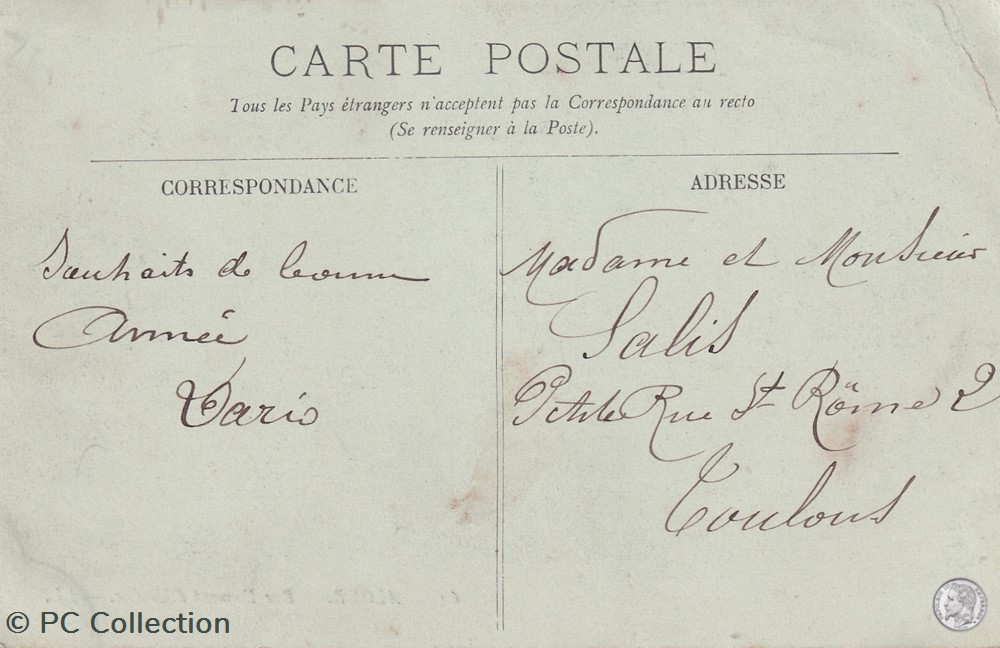 CARTE POSTALE
Tous les Pays étrangers n'acceptent pas la Correspondance au recto
(Se renseigner à la Poste).
CORRESPONDANCE
Souhaits de bonne
Année
ADRESSE
Madame et Monsieur
Salis
Petite Rue St Rôme 2
Toulous
© PC Collection